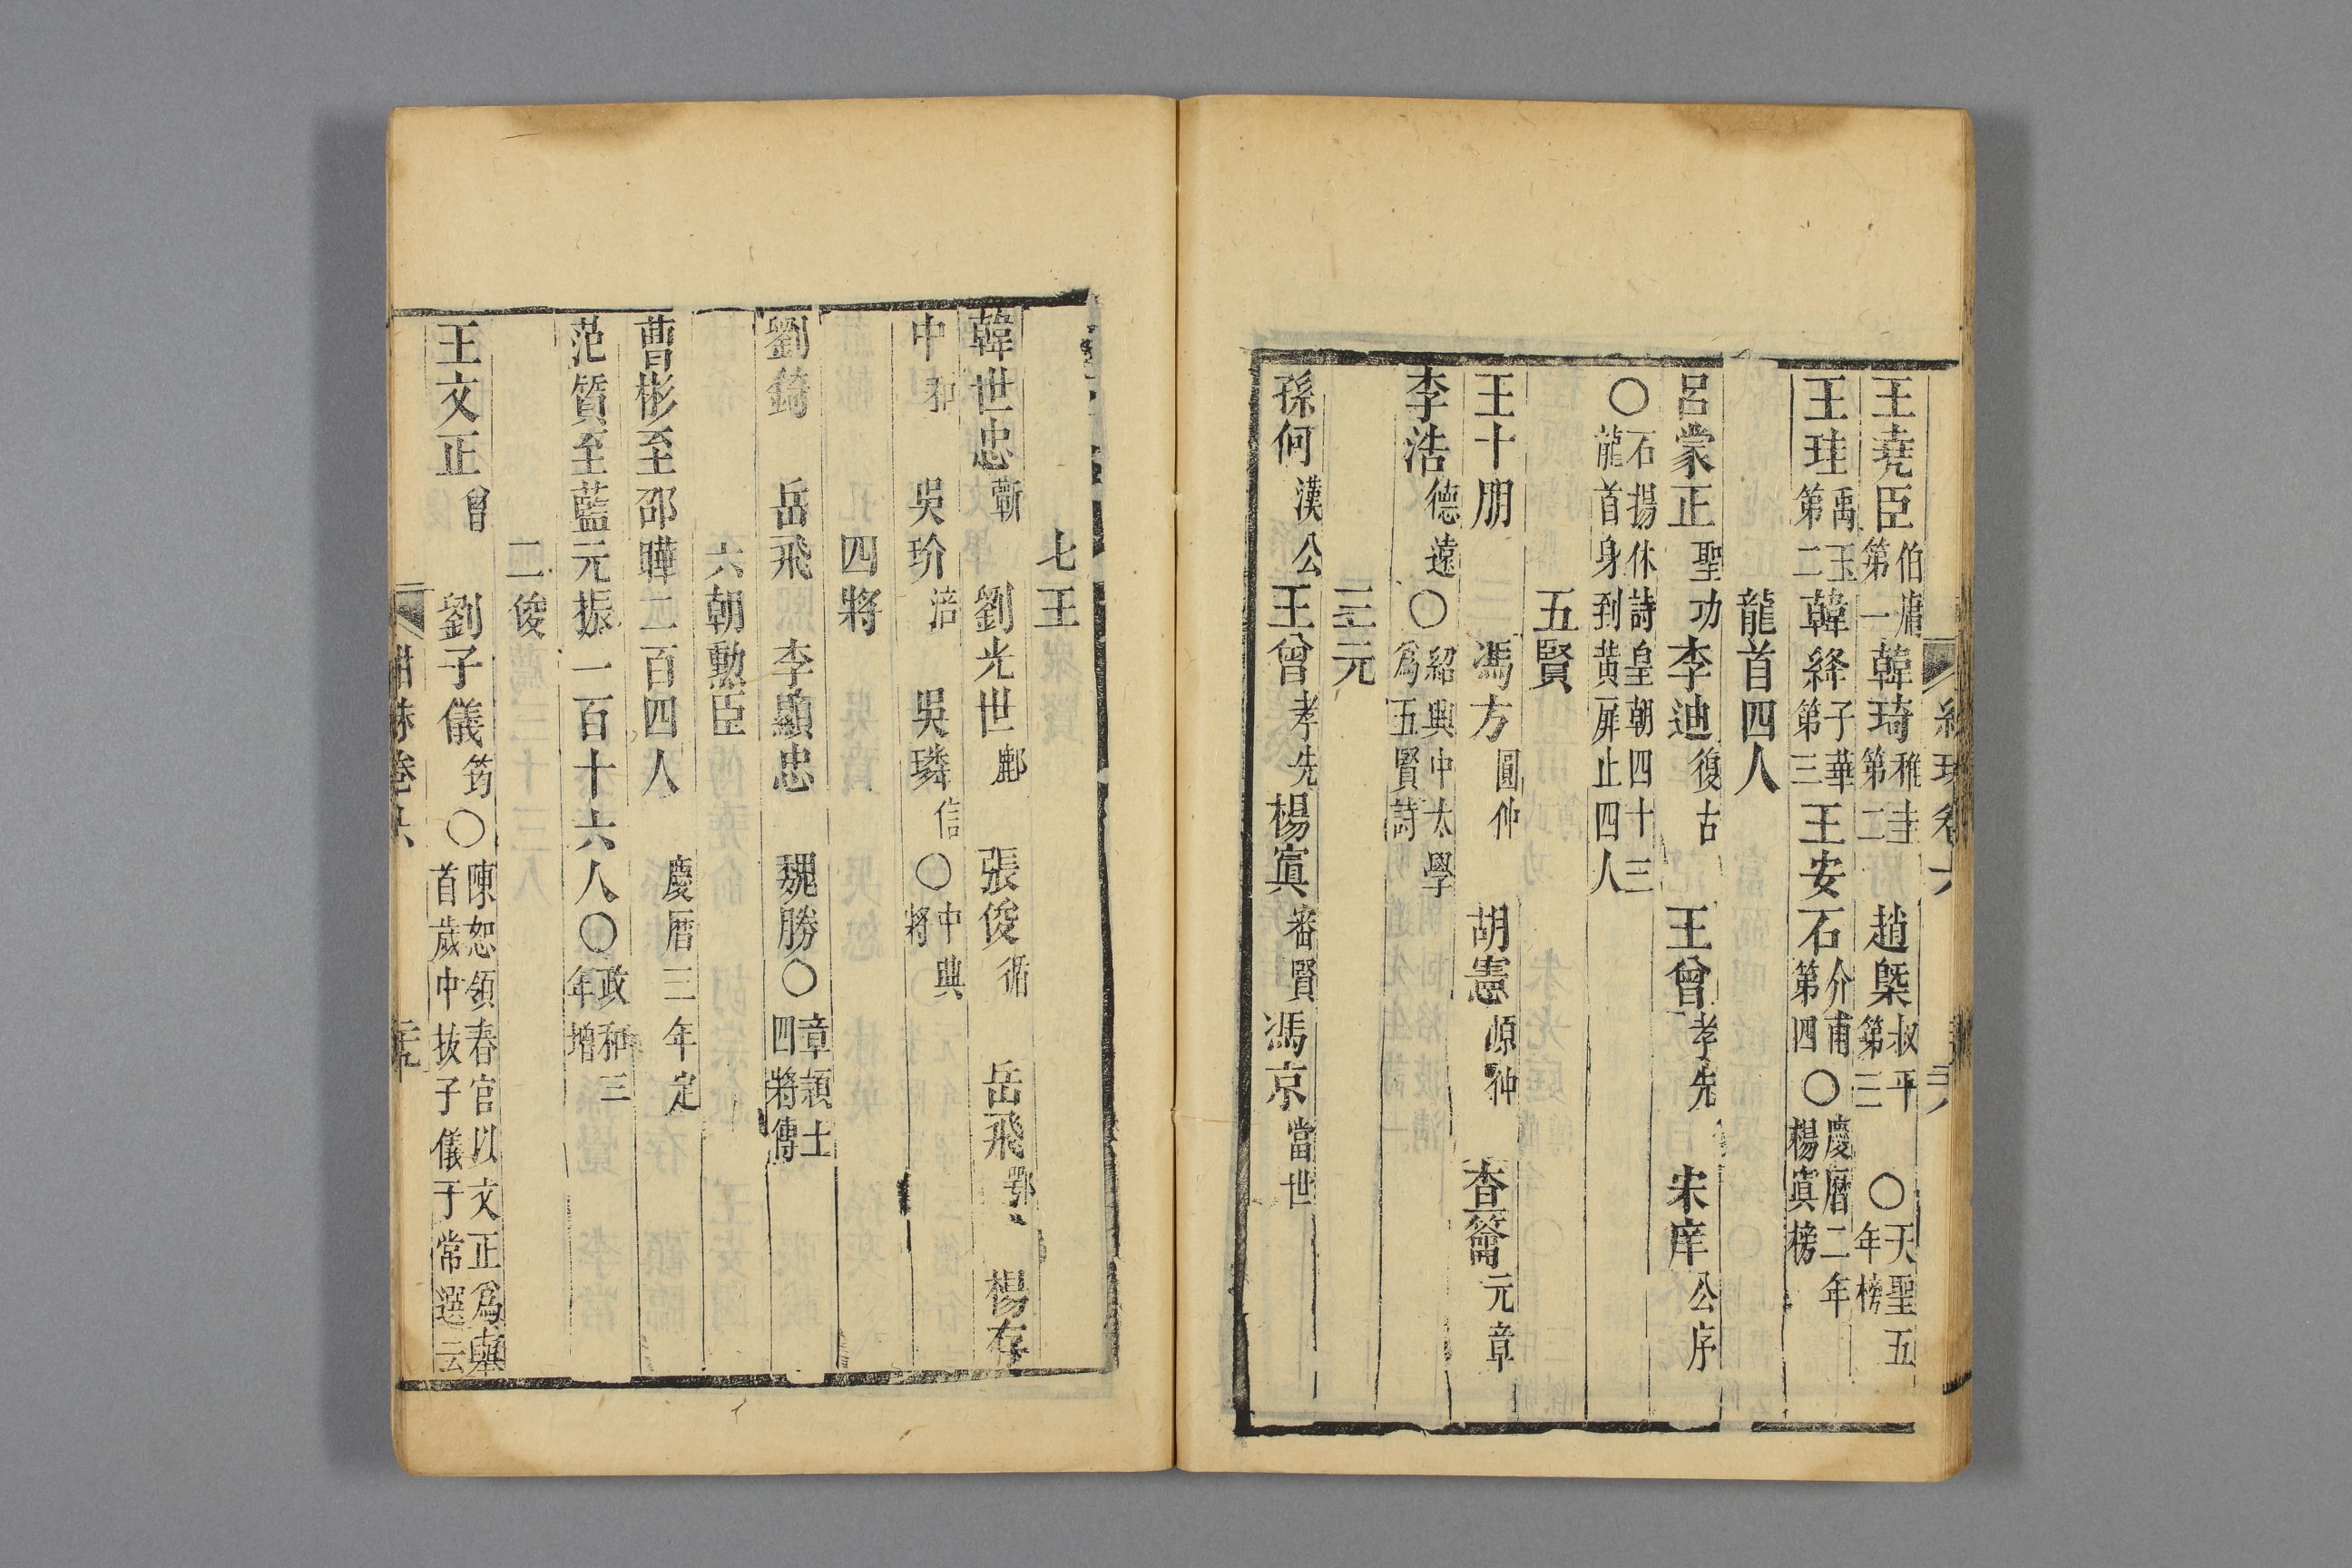 王堯臣伯庸第一韓琦稚圭第二趙槩叔平第三〇天聖五年榜
王珪禹玉第二韓絳子華第三王安石介甫第四〇慶曆二年楊寘榜
龍首四人
呂蒙正聖功李迪復古王曾孝先宋庠公序
〇石揚休詩皇朝四十三龍首身到黃扉止四人
五賢
王十朋 馮方圓仲 胡憲原仲 查籥元章
李浩德遠〇紹興中太學為五賢詩
三元
孫何漢公王曾孝先楊寘審賢馮京當世
七王
韓世忠蘄 劉光世鄜 張俊循 岳飛鄂 楊存
中和 吳玠涪 吳璘信〇中興將
四將
劉錡 岳飛 李顯忠 魏勝〇章頴士四將傳
六朝勳臣
曹彬至邵曄二百四人 慶曆三年定
范質至藍元振一百十六人〇政和三年增
二俊
王文正曾 劉子儀筠〇陳恕領春官以文正為舉首歲中抜子儀于常選云